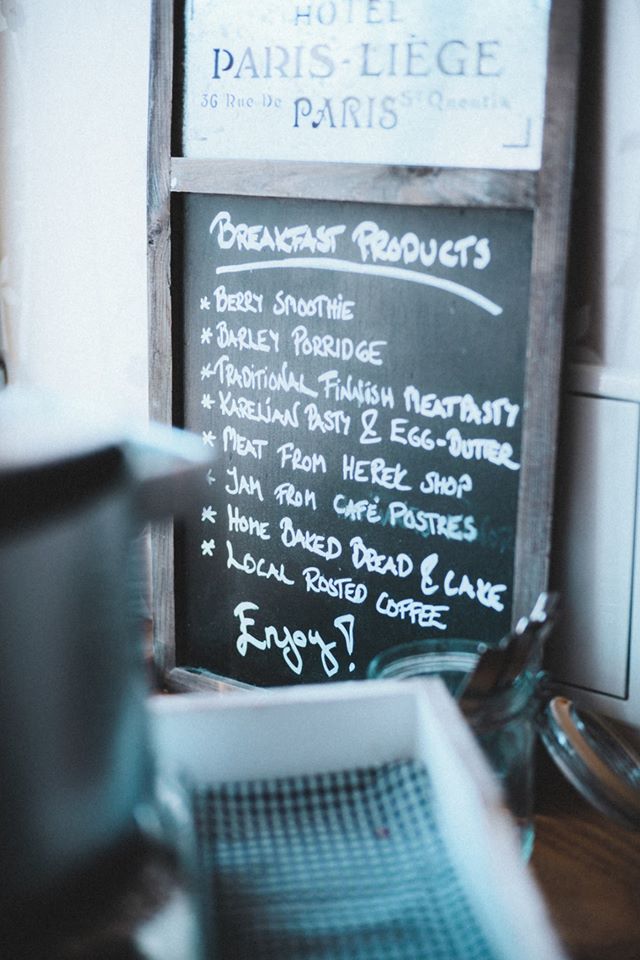 HOTEL
PARIS-LIÈGE
36 Rue De PARIS St Quentin
BREAKFAST PRODUCTS
* BERRY SMOOTHIE
* BARLEY PORRIDGE
* TRADITIONAL FINNISH MEATPASTY
* KARELIAN PASTY & EGG-BUTTER
* MEAT FROM HEREK SHOP
* JAM FROM CAFÉ POSTRES
* HOME BAKED BREAD & CAKE
* LOCAL ROSTED COFFEE
Enjoy!